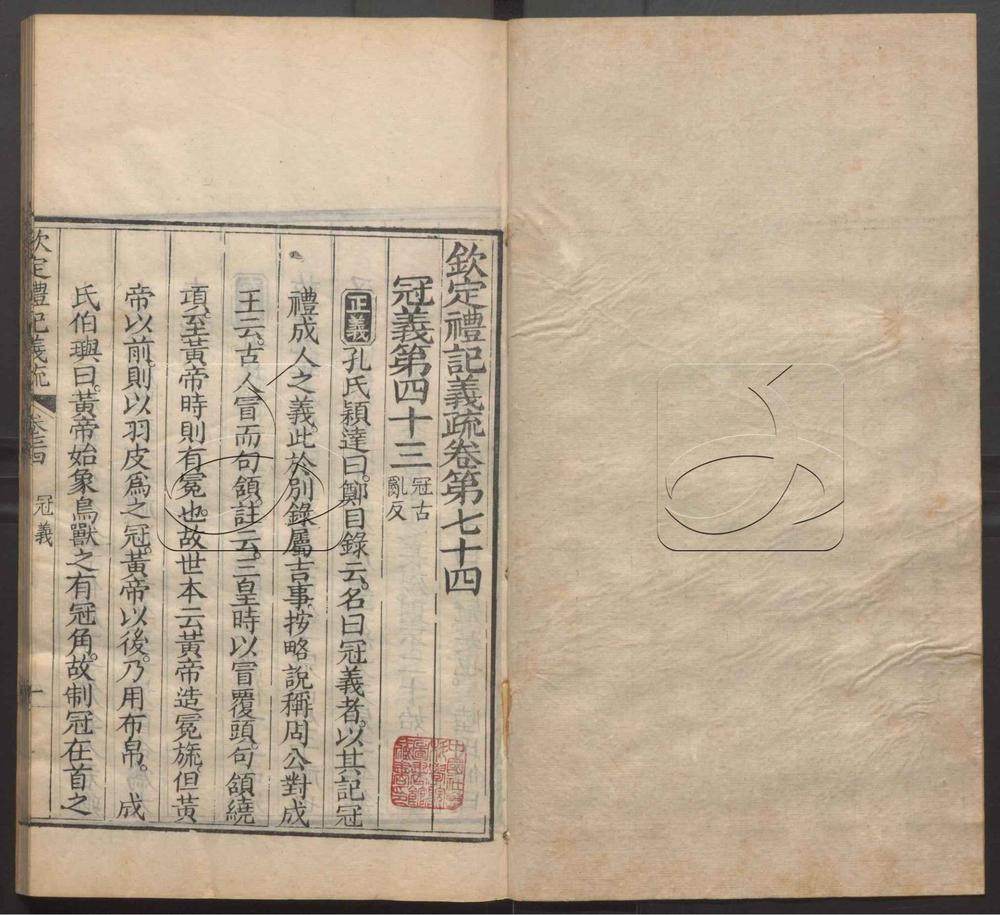 欽定禮記義疏卷第七十四
冠義第四十三
冠古
亂反
正義孔氏穎達曰鄭目錄云名曰冠義者以其記冠
禮成人之義此於別錄屬吉事按略說稱周公對成
王云古人冒而句領註云三皇時以冒覆頭句頷繞
項至黃帝時則有冕也故世本云黃帝造冕旒但黃
帝以前則以羽皮爲之冠黃帝以後乃用布帛。成
氏伯璵曰黃帝始象鳥獸之有冠角故制冠在首之
欽定禮記義疏
冠義
一